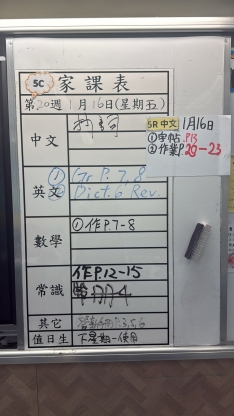 5C 家課表
第20週1月16日(星期五)
中文 抄詞
5R中文 1月16日
①字帖P.13
②作業P.20-23
英文 ① Gr P. 7,8
② Dict. 6 Rev.
數學 ①作P.7-8
常識 作P.12-15
其它
值日生 下星期一使用